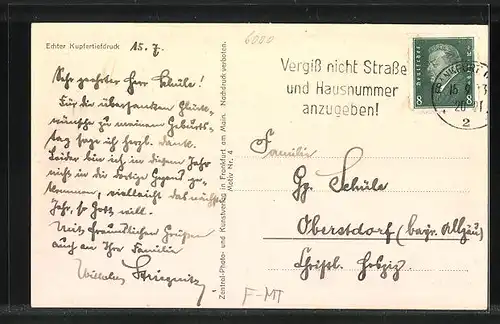 Echter Kupfertiefdruck
15. 7.
Sehr geehrter Herr Schüle!
Für die übersandten Glück-
wünsche zu meinem Geburts-
tag sage ich herzl. Dank.
Leider bin ich in diesem Jahr
nicht in die dortige Gegend ge-
kommen, vielleicht das nächste
Jahr, so Gott will.
Mit freundlichen Grüßen
auch an Ihre Familie
Wilhelm
Zentral-Photo- und Kunstverlag in Frankfurt am Main. Nachdruck verboten.
Motiv Nr. 4
6000
Vergiß nicht Straße
und Hausnummer
anzugeben!
Deutsches Reich
8 8
2
Familie
Gg. Schüle
Oberstdorf (bayr. Allgäu)
Christl. Hospiz.
F-MT